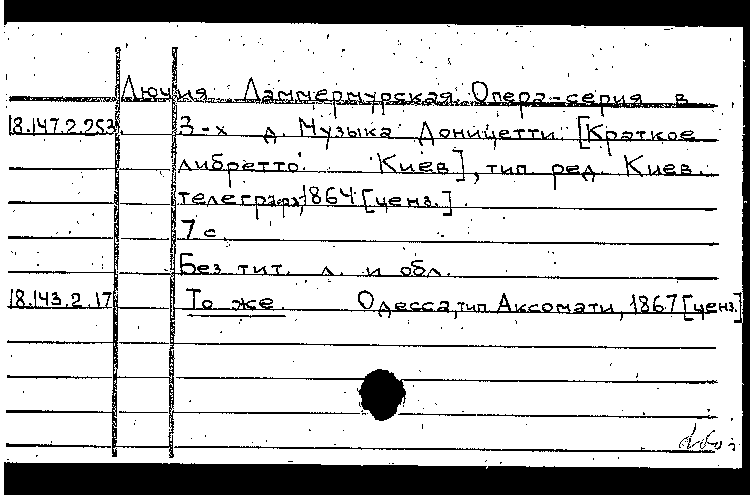 Лючия Ламмермурская. Опера-серия в
18.147.2.253. 3-х д. Музыка Доницетти. [Краткое
либретто. Киев], тип. ред. Киев.
телеграфа, 1864. [ценз.].
7 с.
Без тит. л. и обл.
18.143.2.17 То же. Одесса, тип. Аксомати, 1867 [ценз.]